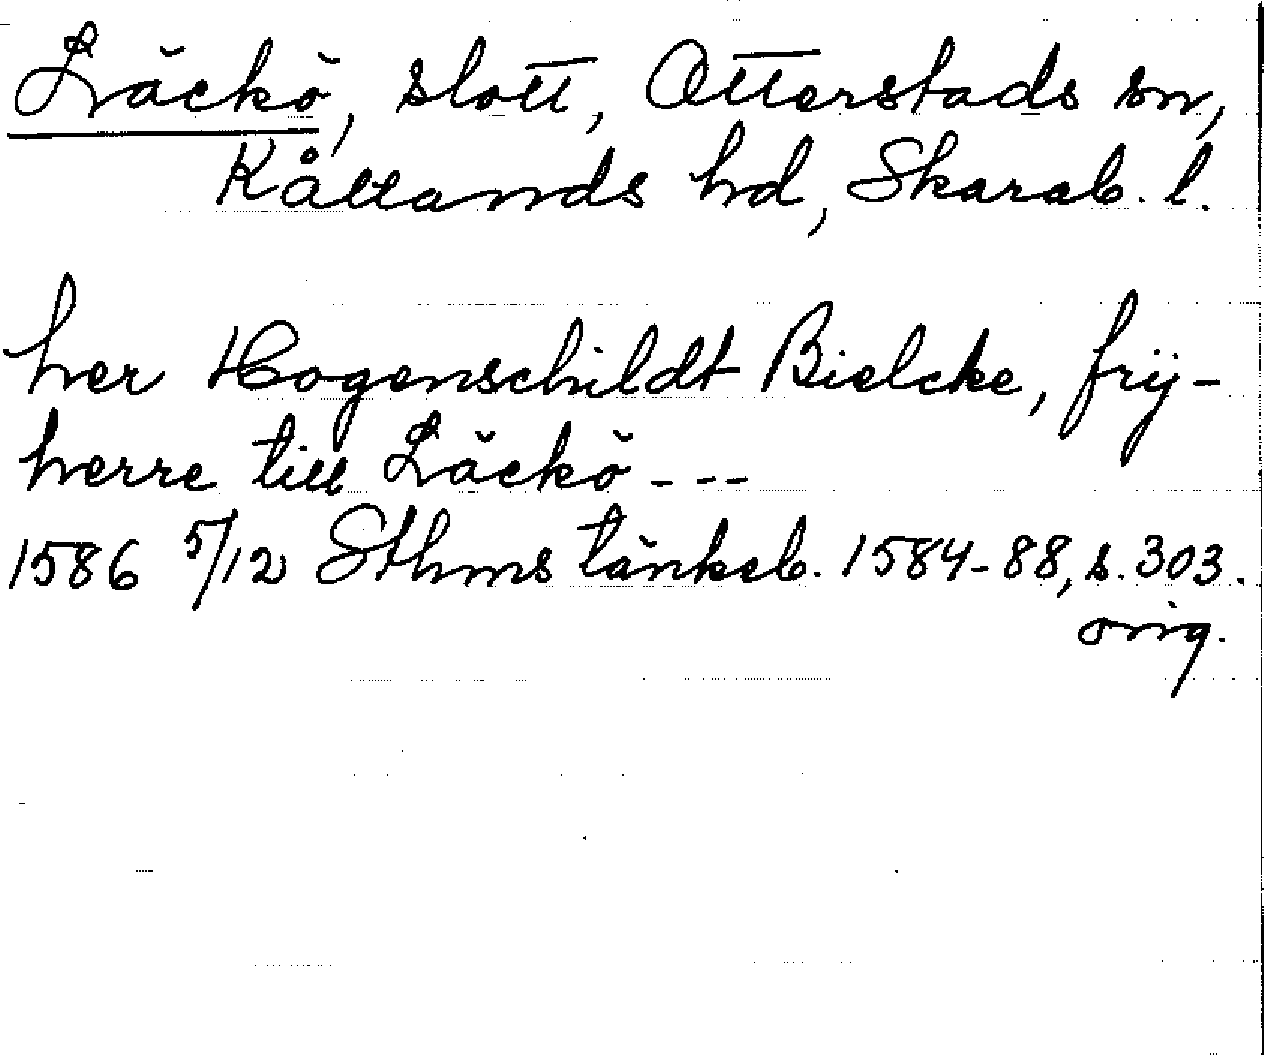 Läckö, slott, Otterstads sn,
Kållands hd, Skarab. l.
her Hogenschildt Bielcke, frij-
herre till Läckö - - -
1586 5/12 Sthms tänkeb. 1584-88, s. 303.
orig.